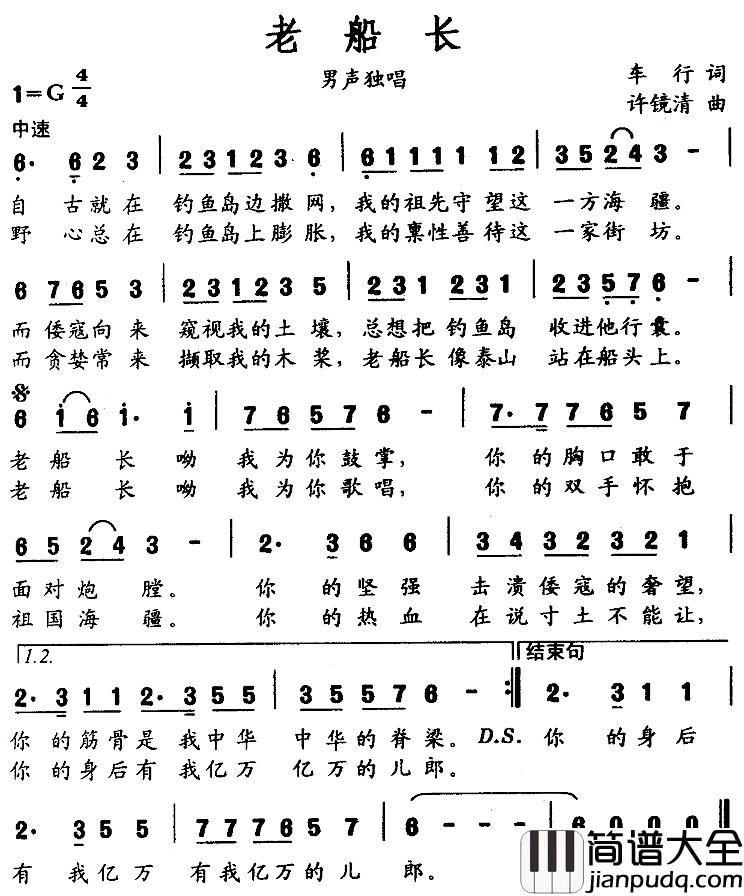 老 船 长
男声独唱
车 行 词
许镜清 曲
1=G 4/4
中速
6· 6 2 3 | 2 3 1 2 3 6 | 6 1 1 1 1 1 2 | 3 5 2 4 3 - |
自 古就在 钓鱼岛边撒网，我的祖先守望这 一方海 疆。
野 心总在 钓鱼岛上膨胀，我的禀性善待这 一家街 坊。
6 7 6 5 3 | 2 3 1 2 3 5 | 2 3 1 2 3 1 | 2 3 5 7 6 - |
而倭寇向来 窥视我的土壤，总想把钓鱼岛 收进他行囊。
而贪婪常来 撷取我的木桨，老船长像泰山 站在船头上。
6 1 6 1· 1 | 7 6 5 7 6 - | 7· 7 7 6 5 7 |
老船 长呦 我为你鼓掌， 你的胸口敢于
老船 长呦 我为你歌唱， 你的双手怀抱
6 5 2 4 3 - | 2· 3 6 6 | 3 4 3 2 3 2 1 |
面对炮 膛。 你 的坚强 击溃倭寇的奢望，
祖国海 疆。 你 的热血 在说寸土不能让，
1.2. 结束句
2· 3 1 1 2· 3 5 5 | 3 5 5 7 6 - :‖ 2· 3 1 1 |
你的筋骨是我中华 中华的脊梁。D.S. 你 的身后
你的身后有我亿万 亿万的儿郎。
2· 3 5 5 | 7 7 7 6 5 7 | 6 - - - | 6 0 0 0 ‖
有 我亿万 有我亿万的儿 郎。
简谱大全
jianpudq.com